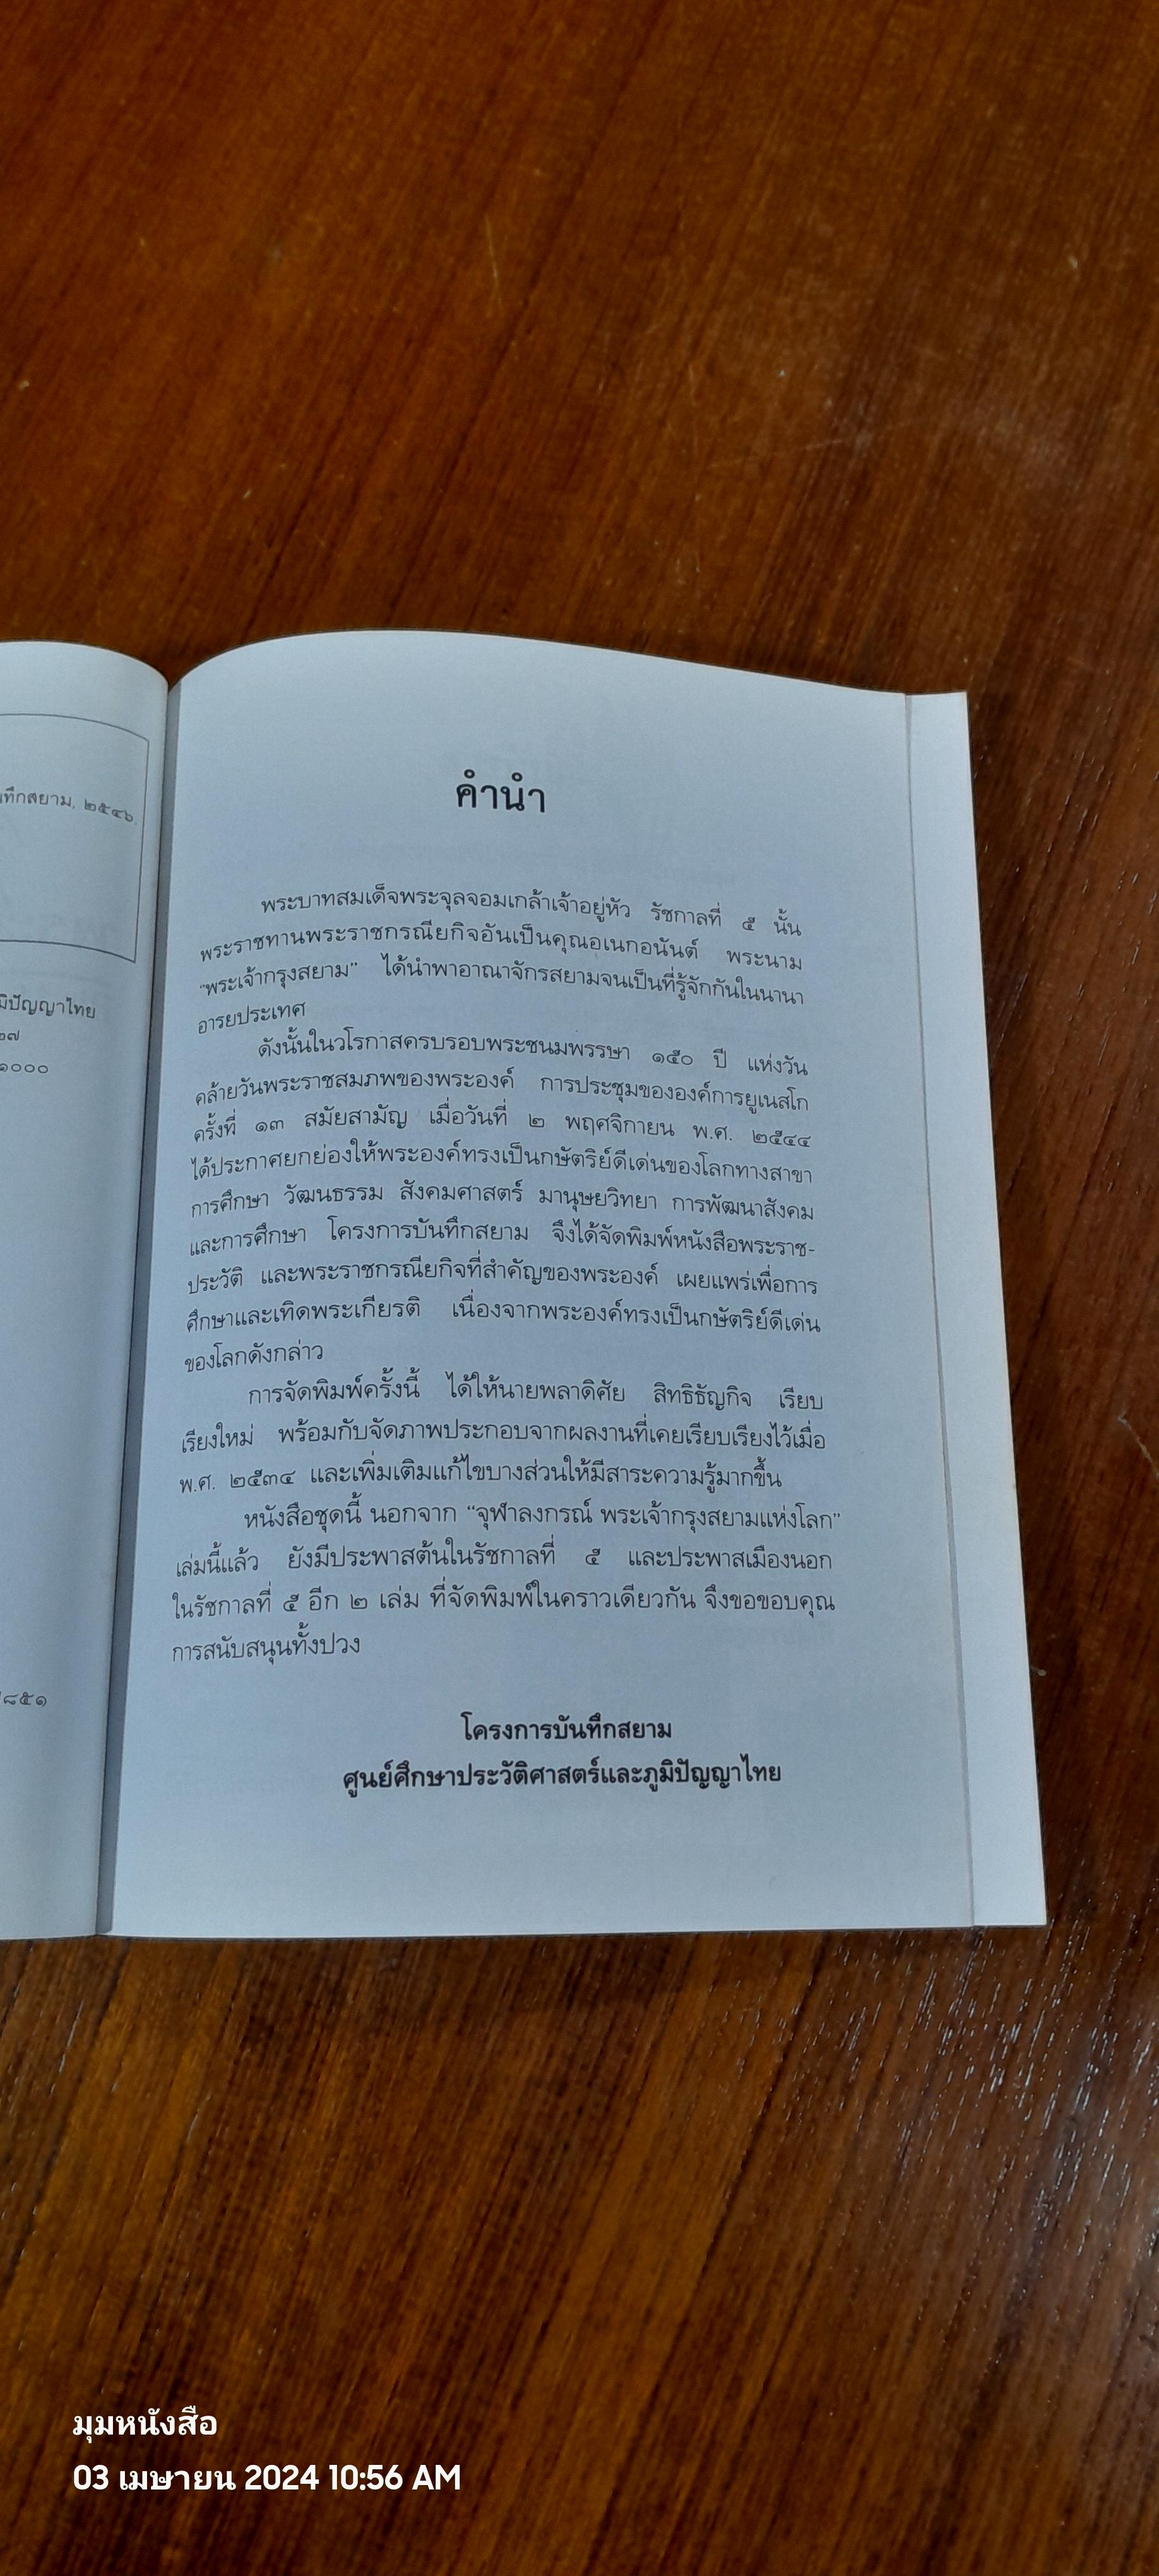 ันทึกสยาม, ๒๕๔๖.
มิปัญญาไทย
๒๗
๑๐๐๐
๘๕๑
คำนำ
พระบาทสมเด็จพระจุลจอมเกล้าเจ้าอยู่หัว รัชกาลที่ ๕ นั้น
พระราชทานพระราชกรณียกิจอันเป็นคุณอเนกอนันต์ พระนาม
“พระเจ้ากรุงสยาม” ได้นำพาอาณาจักรสยามจนเป็นที่รู้จักกันในนานา
อารยประเทศ
ดังนั้นในวโรกาสครบรอบพระชนมพรรษา ๑๕๐ ปี แห่งวัน
คล้ายวันพระราชสมภพของพระองค์ การประชุมขององค์การยูเนสโก
ครั้งที่ ๑๓ สมัยสามัญ เมื่อวันที่ ๒ พฤศจิกายน พ.ศ. ๒๕๔๔
ได้ประกาศยกย่องให้พระองค์ทรงเป็นกษัตริย์ดีเด่นของโลกทางสาขา
การศึกษา วัฒนธรรม สังคมศาสตร์ มานุษยวิทยา การพัฒนาสังคม
และการศึกษา โครงการบันทึกสยาม จึงได้จัดพิมพ์หนังสือพระราช-
ประวัติ และพระราชกรณียกิจที่สำคัญของพระองค์ เผยแพร่เพื่อการ
ศึกษาและเทิดพระเกียรติ เนื่องจากพระองค์ทรงเป็นกษัตริย์ดีเด่น
ของโลกดังกล่าว
การจัดพิมพ์ครั้งนี้ ได้ให้นายพลาดิศัย สิทธิธัญกิจ เรียบ
เรียงใหม่ พร้อมกับจัดภาพประกอบจากผลงานที่เคยเรียบเรียงไว้เมื่อ
พ.ศ. ๒๕๓๔ และเพิ่มเติมแก้ไขบางส่วนให้มีสาระความรู้มากขึ้น
หนังสือชุดนี้ นอกจาก “จุฬาลงกรณ์ พระเจ้ากรุงสยามแห่งโลก”
เล่มนี้แล้ว ยังมีประพาสต้นในรัชกาลที่ ๕ และประพาสเมืองนอก
ในรัชกาลที่ ๕ อีก ๒ เล่ม ที่จัดพิมพ์ในคราวเดียวกัน จึงขอขอบคุณ
การสนับสนุนทั้งปวง
โครงการบันทึกสยาม
ศูนย์ศึกษาประวัติศาสตร์และภูมิปัญญาไทย
มุมหนังสือ
03 เมษายน 2024 10:56 AM